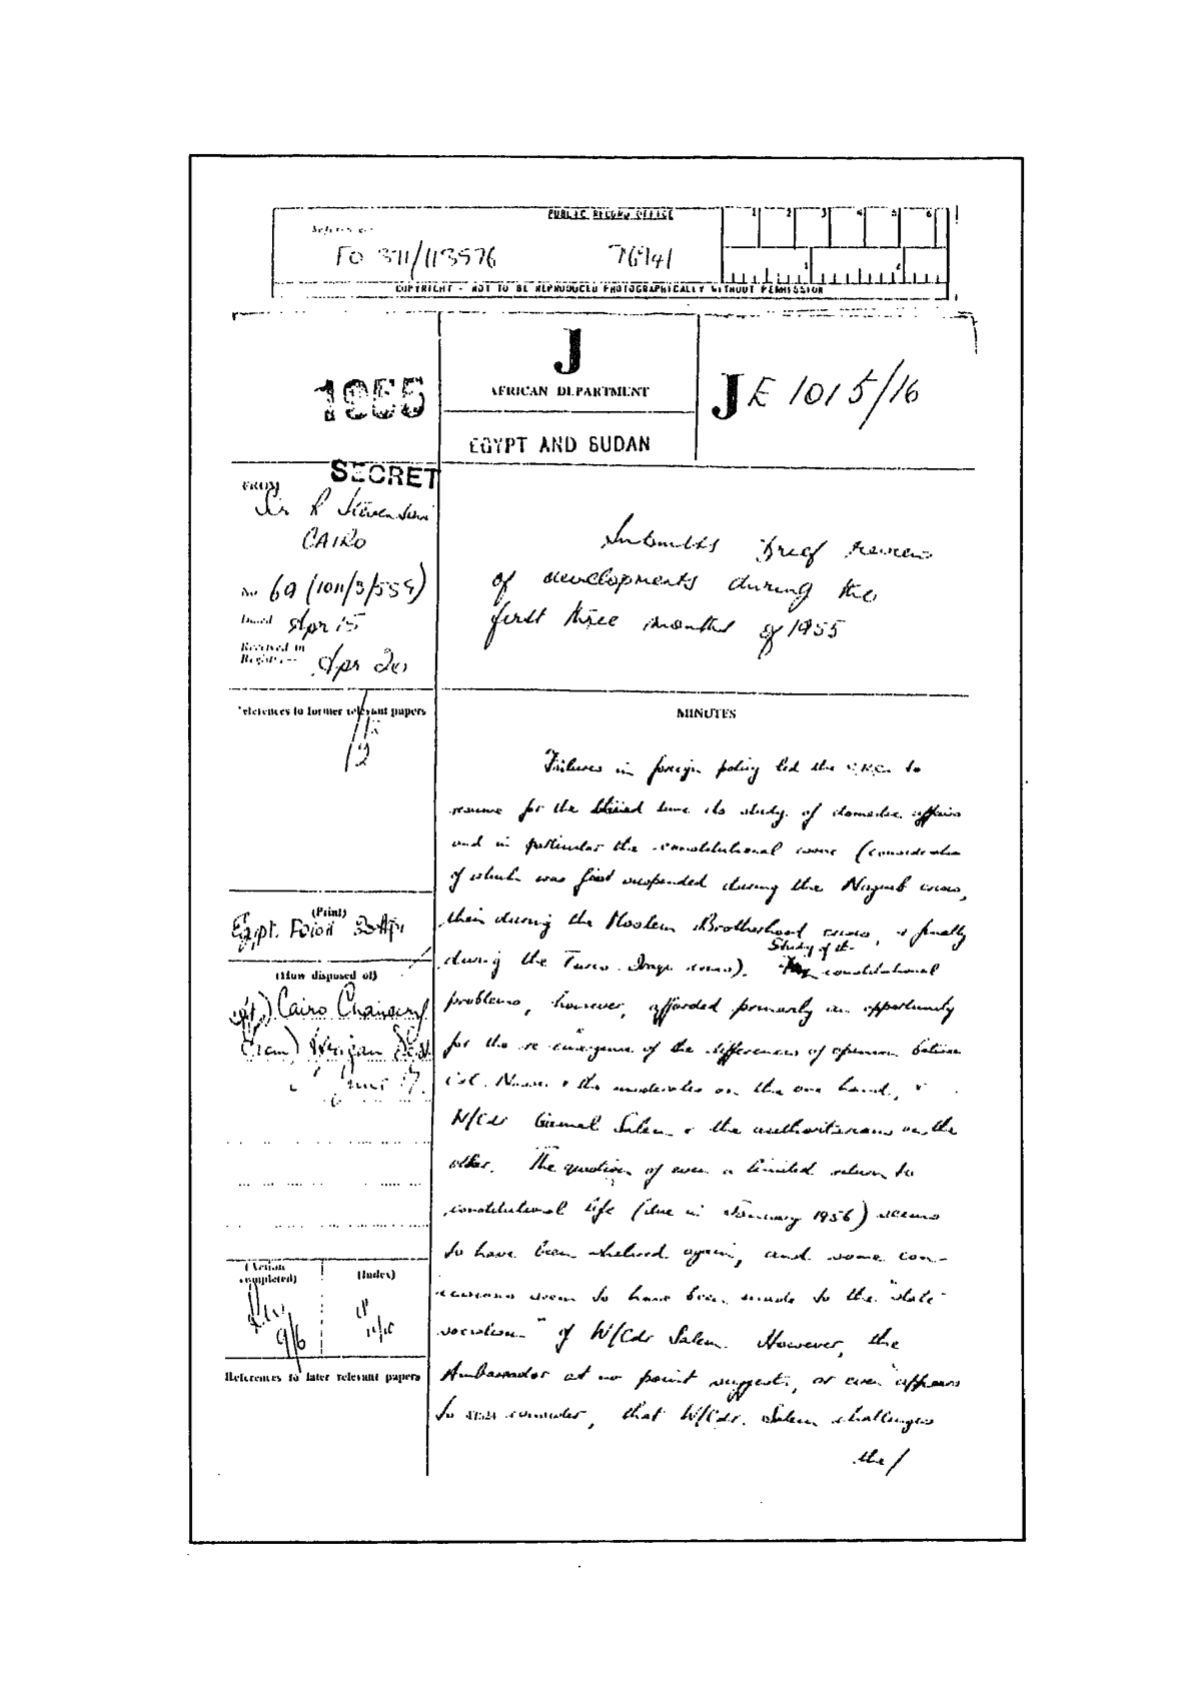 PUBLIC RECORD OFFICE
1 2 3 4 5 6
Reference:-
FO 371/113576 76941
1 2
COPYRIGHT - NOT TO BE REPRODUCED PHOTOGRAPHICALLY WITHOUT PERMISSION
1955
J
AFRICAN DEPARTMENT
EGYPT AND SUDAN
JE 1015/16
SECRET
FROM
Sir R Stevenson
CAIRO
No 69 (1011/3/55G)
Dated Apr 15
Received in
Registry Apr 20
Submits brief review
of developments during the
first three months of 1955
References to former relevant papers
15
(Print)
Egypt. 
(How disposed of)
Cairo Chancery
African Dept
June 7
(Action
completed)
9/6
(Index)
References to later relevant papers
MINUTES
Failures in foreign policy led the to
resume for the third time its study of domestic affairs
and in particular the constitutional issue (consideration
of which was first suspended during the Naguib crisis,
then during the Moslem Brotherhood crisis, & finally
during the Turco-Iraqi crisis). Study of the constitutional
problems, however, afforded primarily an opportunity
for the re-emergence of the differences of opinion between
Col. Nasser & the moderates on the one hand, &
W/Cdr Gamal Salem & the authoritarians on the
other. The question of even a limited return to
constitutional life (due in January 1956) seems
to have been shelved again, and some con-
cessions seem to have been made to the "state
socialism" of W/Cdr Salem. However, the
Ambassador at no point suggests, or even appears
to consider, that W/Cdr. Salem challenges
the/